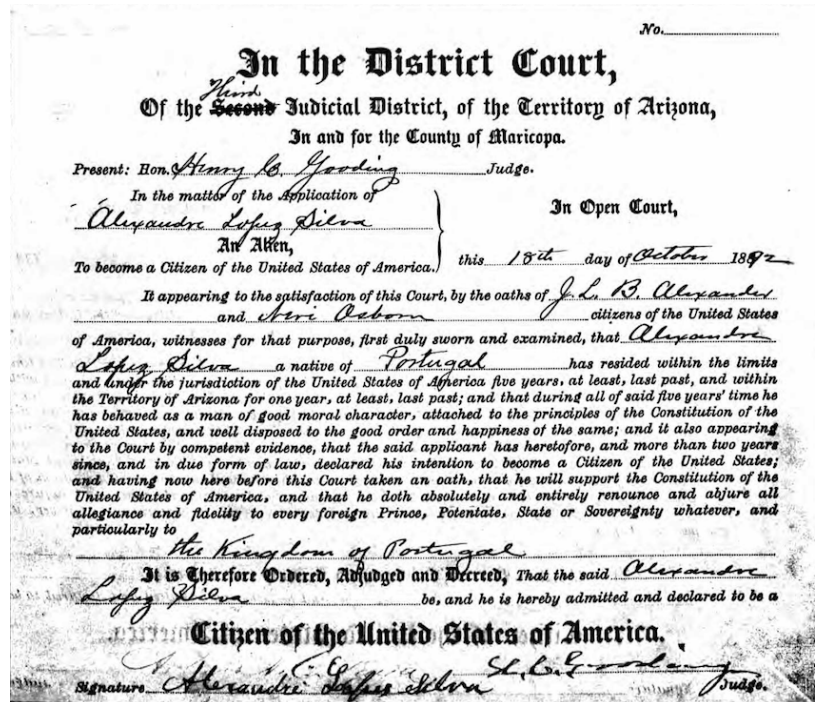 No.
In the District Court,
Third
Of the Second Judicial District, of the Territory of Arizona,
In and for the County of Maricopa.
Present: Hon. Henry C. Gooding Judge.
In the matter of the Application of
Alexandre Lopez Silva
An Alien,
To become a Citizen of the United States of America.
In Open Court,
this 18th day of October 1892
It appearing to the satisfaction of this Court, by the oaths of J. L. B. Alexander
and Neri Osborn citizens of the United States
of America, witnesses for that purpose, first duly sworn and examined, that Alexandre
Lopez Silva a native of Portugal has resided within the limits
and under the jurisdiction of the United States of America five years, at least, last past, and within
the Territory of Arizona for one year, at least, last past; and that during all of said five years' time he
has behaved as a man of good moral character, attached to the principles of the Constitution of the
United States, and well disposed to the good order and happiness of the same; and it also appearing
to the Court by competent evidence, that the said applicant has heretofore, and more than two years
since, and in due form of law, declared his intention to become a Citizen of the United States;
and having now here before this Court taken an oath, that he will support the Constitution of the
United States of America, and that he doth absolutely and entirely renounce and abjure all
allegiance and fidelity to every foreign Prince, Potentate, State or Sovereignty whatever, and
particularly to
the Kingdom of Portugal
It is Therefore Ordered, Adjudged and Decreed, That the said Alexandre
Lopez Silva be, and he is hereby admitted and declared to be a
Citizen of the United States of America.
H. C. Gooding Judge.
Signature Alexandre Lopes Silva